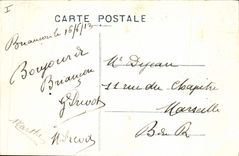 I
CARTE POSTALE
Briançon le 16/6/13
Bonjour de
Briançon
Mr Dejean
11 rue du Chapitre
Marseille
B. du R.